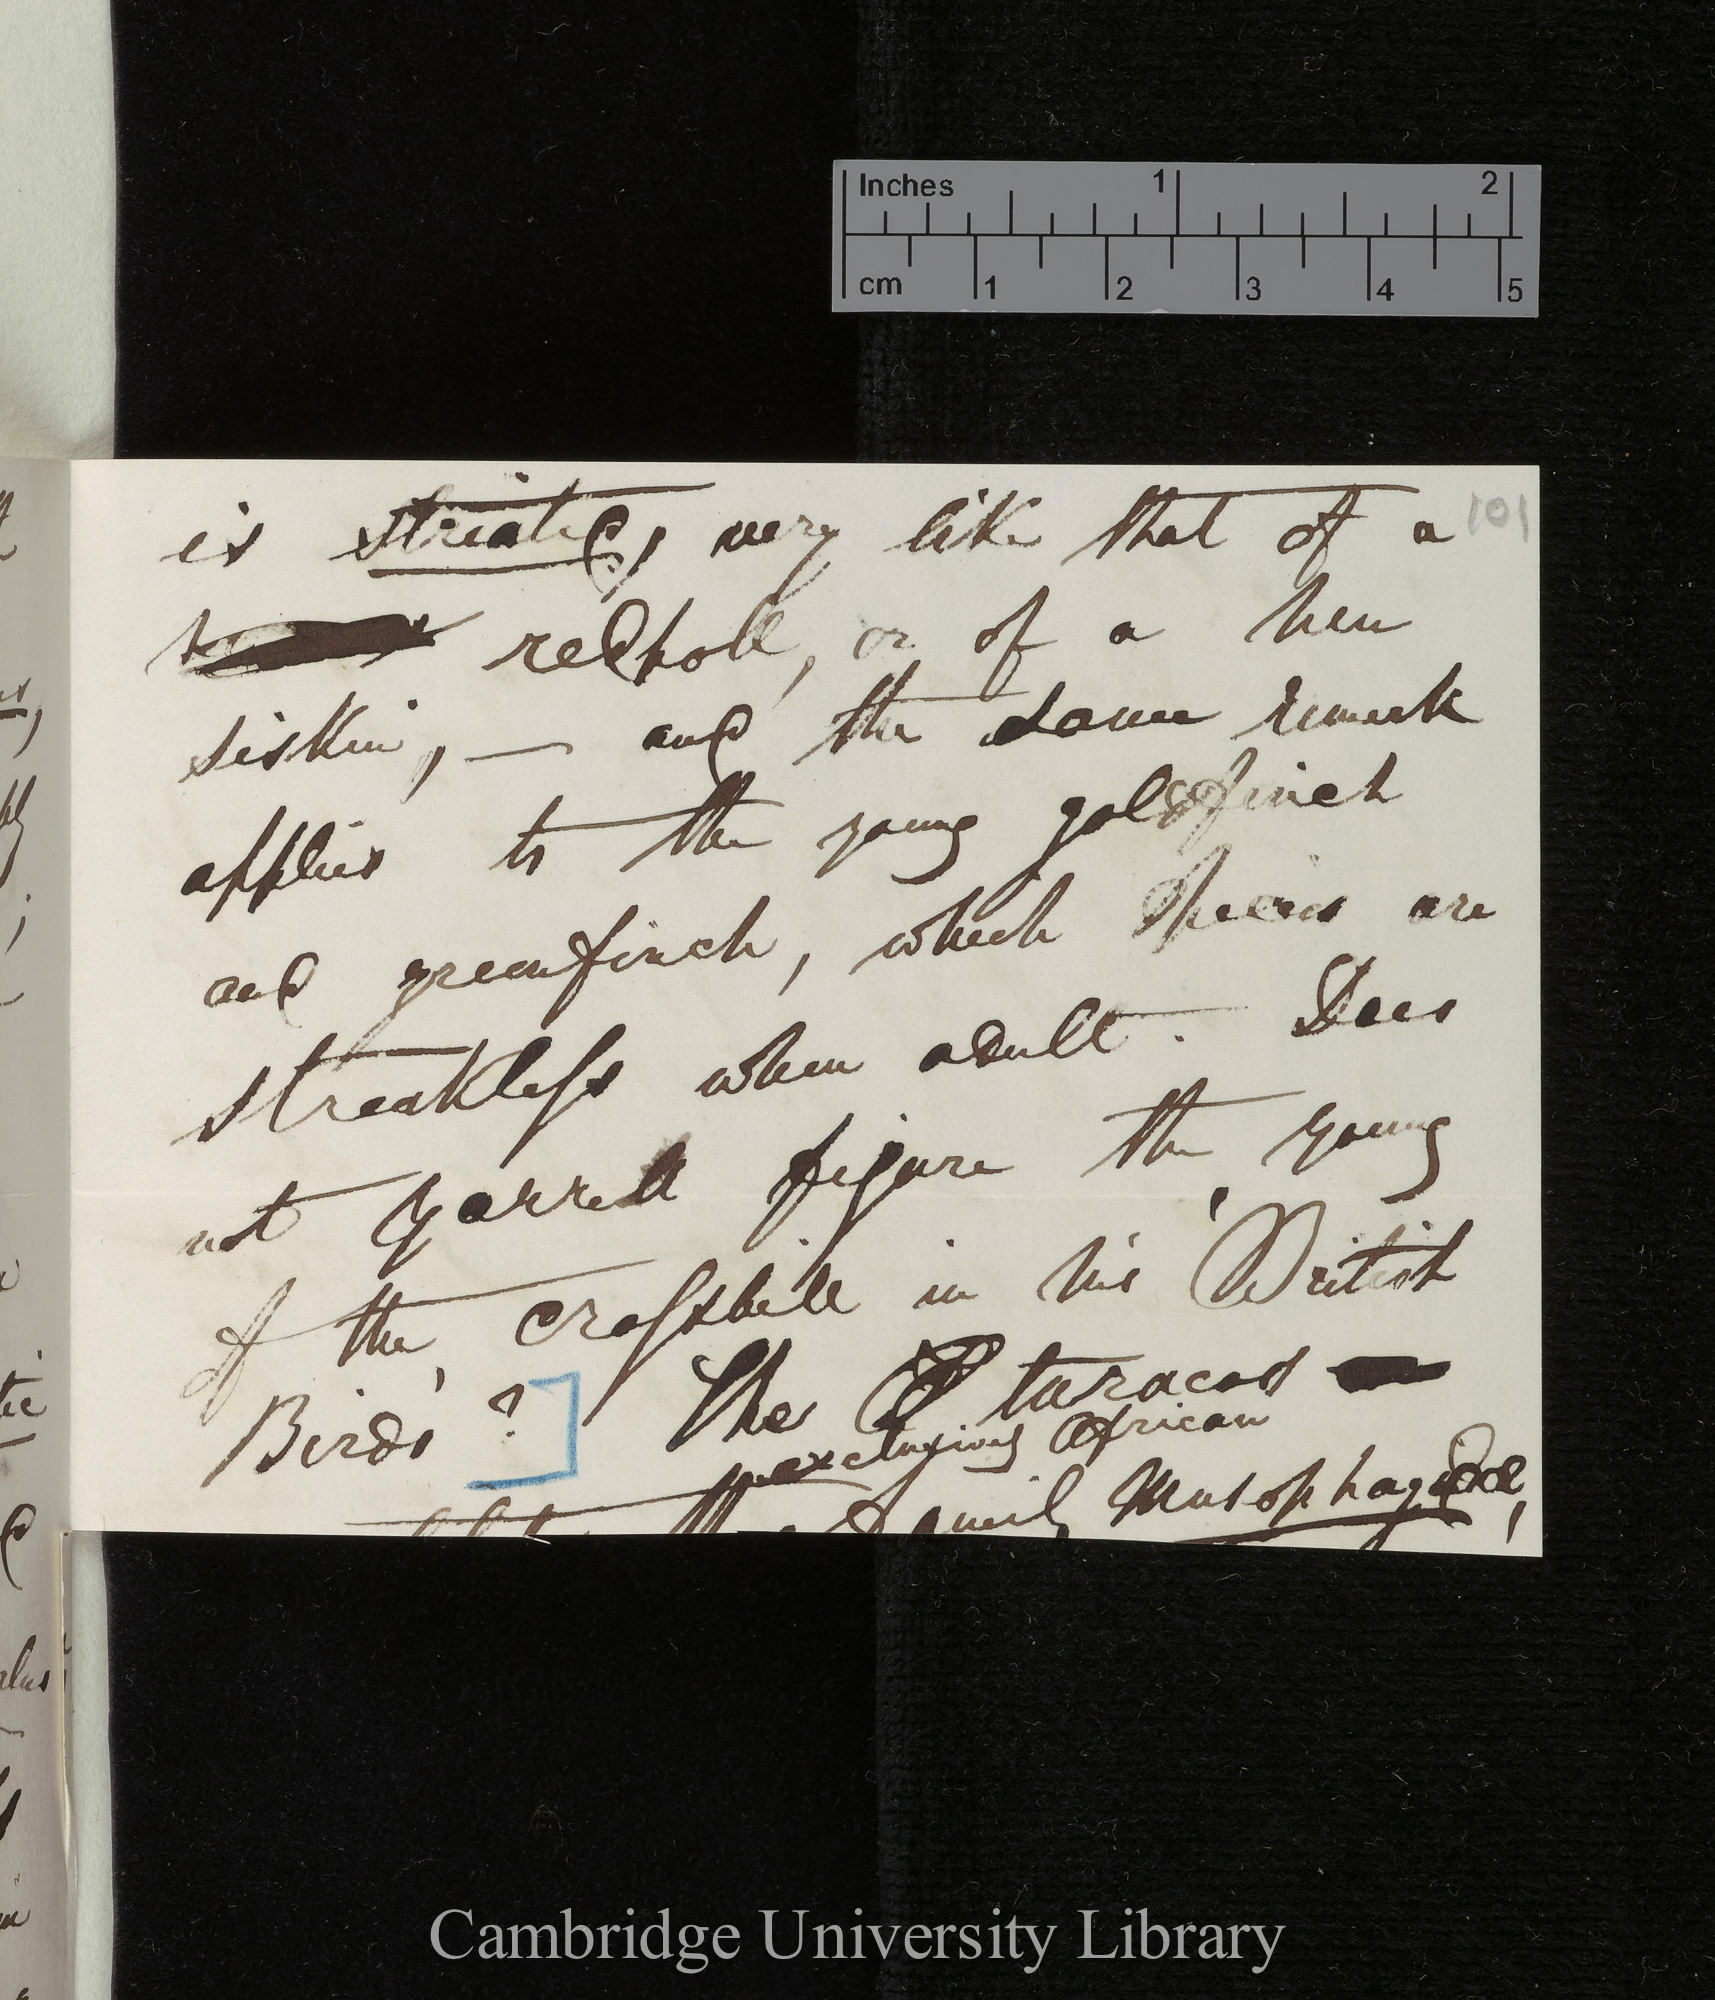 Inches 1 2
cm 1 2 3 4 5
101
is striated, very like that of a
redpole, or of a hen
siskin, — and the same remark
applies to the young goldfinch
and greenfinch, which species are
streakless when adult. Does
not Yarrell figure the young
of the crossbill in his 'British
Birds'? ] The turacos
exclusively African
the family Musophagidae,
Cambridge University Library